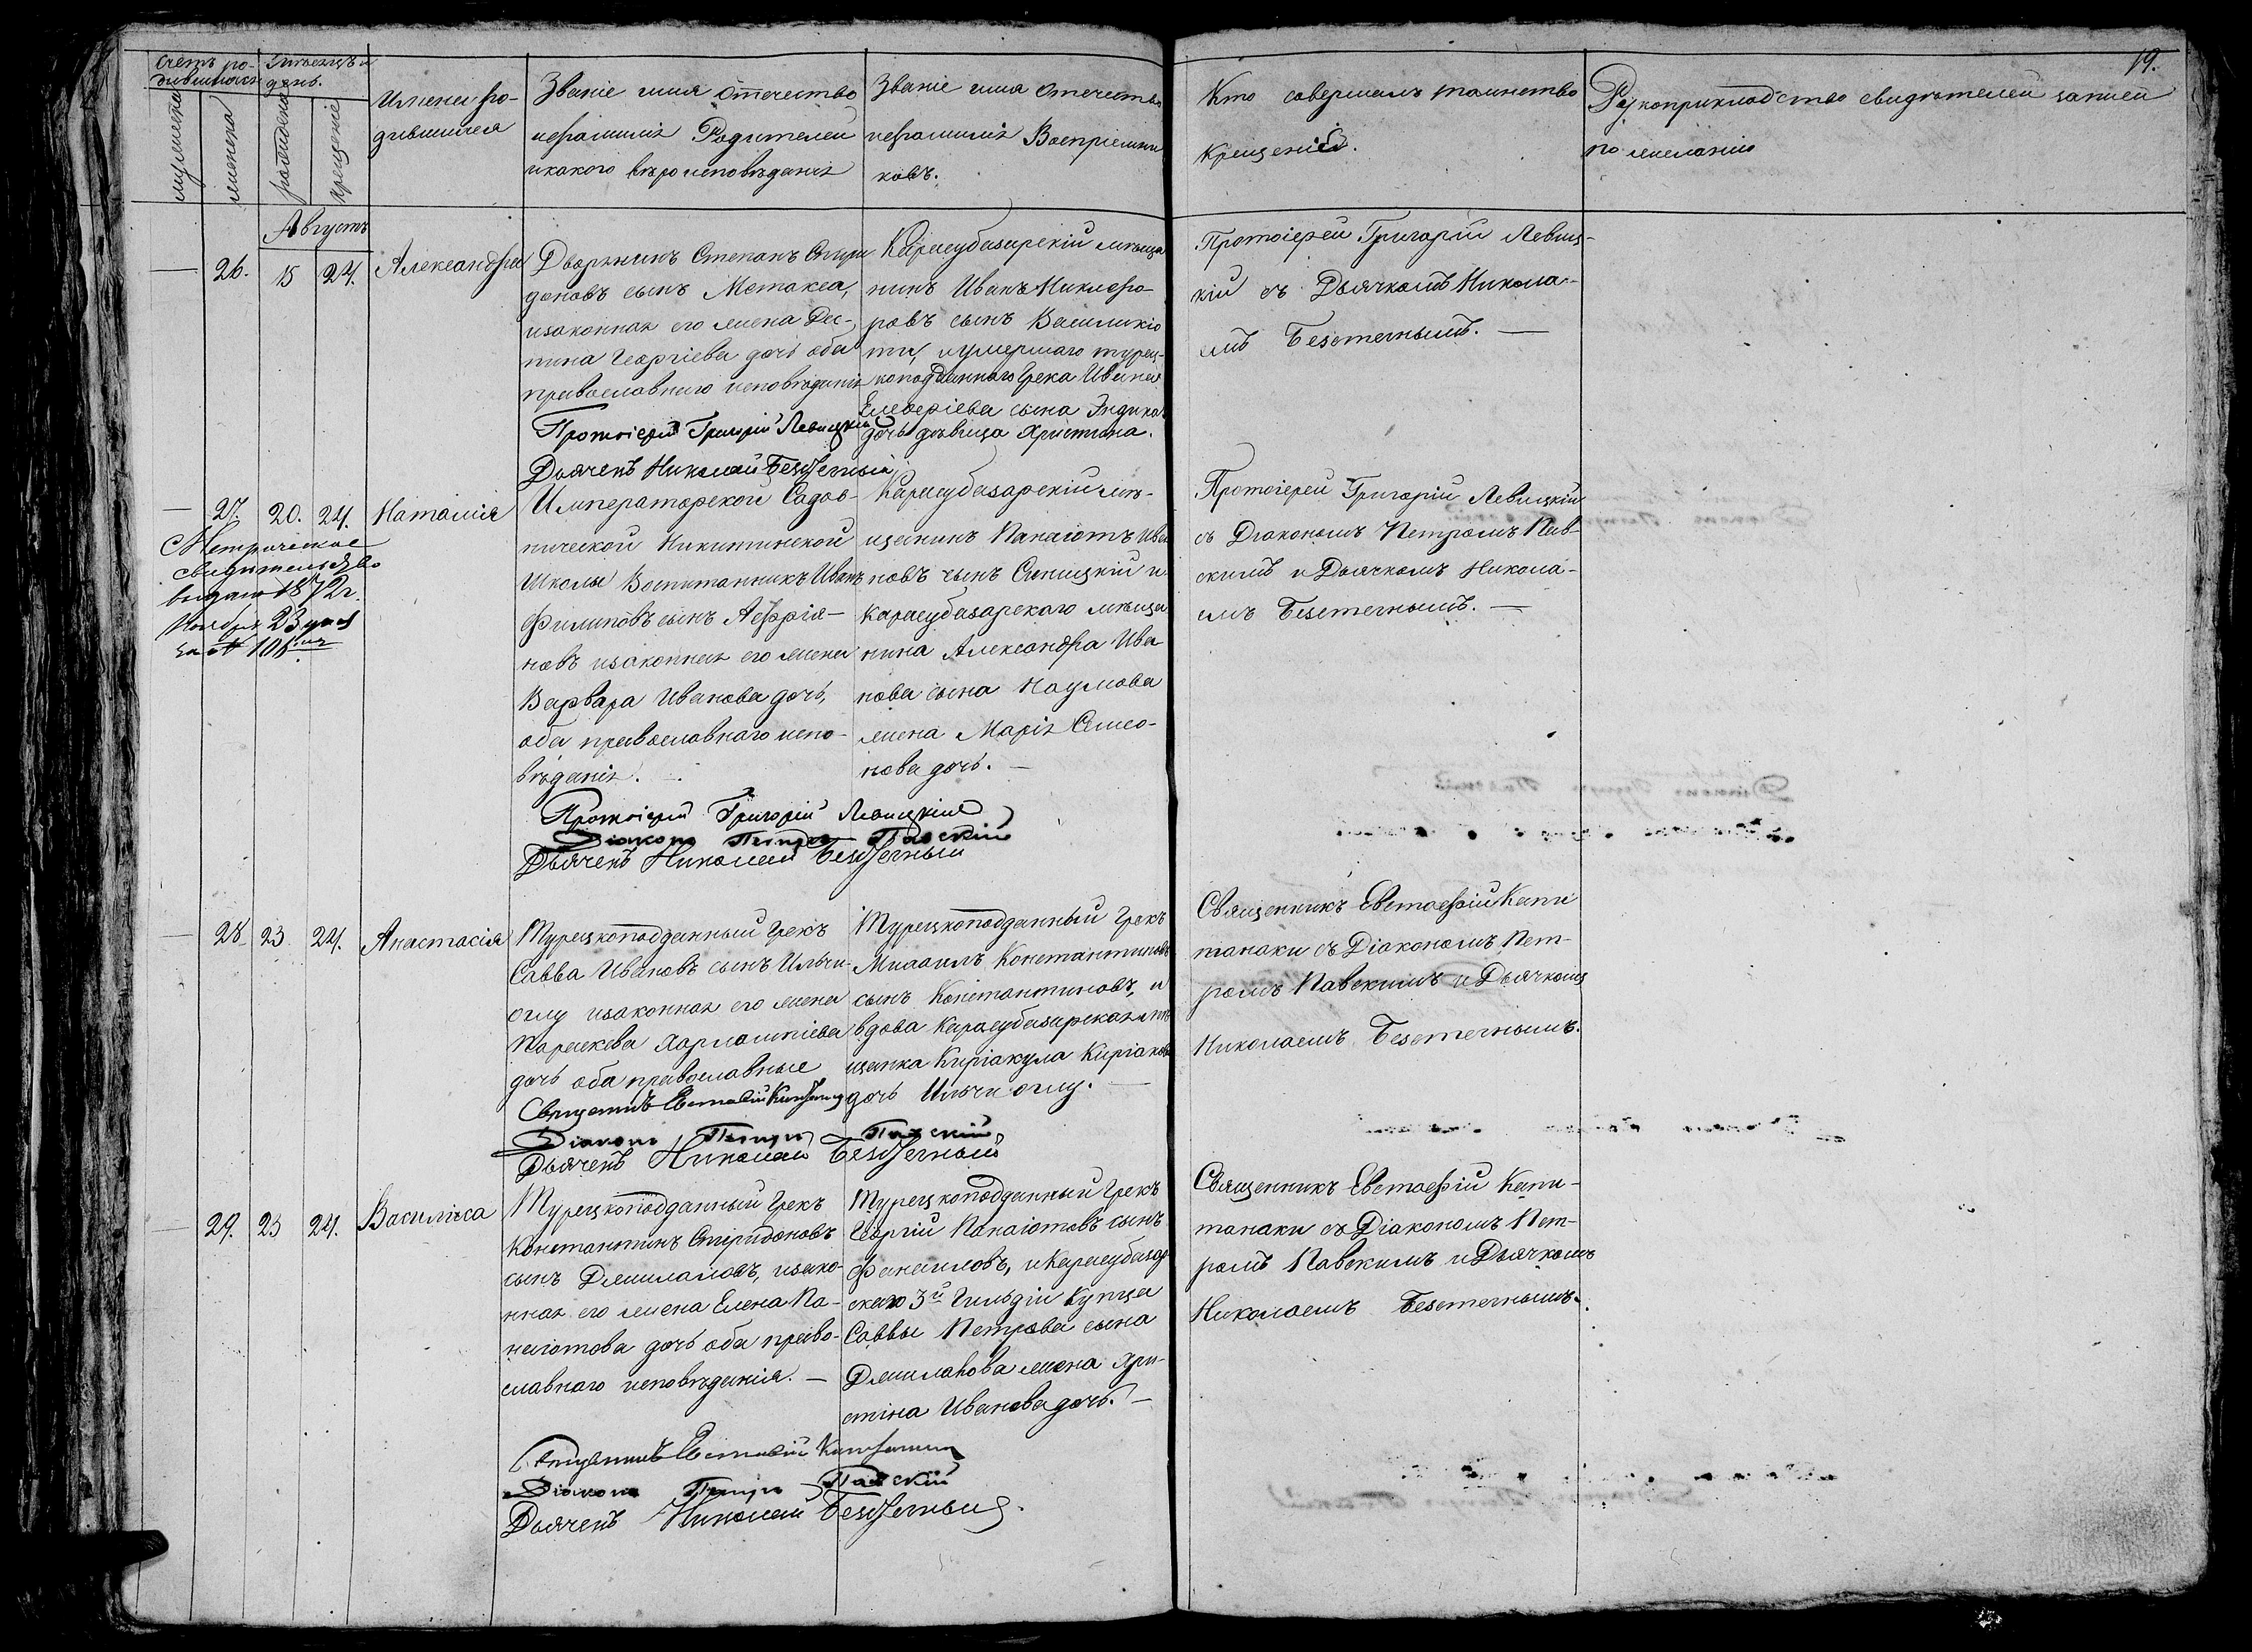 19.
Счетъ ро-
дившихся
Мѣсяцъ и
день.
мужеска
женска
рожденіе
крещеніе
Имена ро-
дившихся
Званіе имя отечество
и фамилія Родителей
и какого вѣроисповѣданія
Званіе имя отечество
и фамилія Воспріемни
ковъ.
Кто совершалъ таинство
крещенія.
Рукоприкладство свидѣтелей записи
по желанію
Августъ
26.
15
24.
Александра
Дворянинъ Степанъ Спири
доновъ сынъ Метакса,
и законная его жена Дес-
пина Георгіева дочь оба
православнаго исповѣданія
Протоіерей Григорій Левицкій
Дьячекъ Николай Безсчетный
Карасубазарскій мѣща
нинъ Иванъ Никифо-
ровъ сынъ Василикіо
ти, и умершаго турец-
коподданнаго Грека Ивана
Елеѳеріева сына
дочь дѣвица Христина.
Протоіерей Григорій Левиц-
кій съ Дьячкомъ Никола-
емъ Безсчетнымъ. —
27.
20.
24.
Наталія
Метрическое
свидѣтельство
выдано 1872 г.
Ноября 23 дня
за № 106
Императорской Садов-
нической Никитинской
Школы Воспитанникъ Иванъ
Филиповъ сынъ Аффія-
новъ и законная его жена
Варвара Иванова дочь,
оба православнаго испо-
вѣданія.
Протоіерей Григорій Левицкій
Діаконъ Петръ Павскій
Дьячекъ Николай Безсчетный
Карасубазарскій мѣ-
щанинъ Панаіотъ Ива
новъ сынъ Синицкій и
Карасубазарскаго мѣща
нина Александра Ива
нова сына Наумова
жена Марія Симео-
нова дочь. —
Протоіерей Григорій Левицкій
съ Діакономъ Петромъ Пав-
скимъ и Дьячкомъ Никола-
емъ Безсчетнымъ. —
28
23
24.
Анастасія
Турецкоподданный Грекъ
Савва Ивановъ сынъ Ильчи-
оглу и законная его жена
Параскева Харлампіева
дочь оба православные
Священникъ Евстафій Капитанаки
Діаконъ Петръ Павскій
Дьячекъ Николай Безсчетный
Турецкоподданный Грекъ
Михаилъ Константиновъ
сынъ Константиновъ, и
вдова Карасубазарская мѣ
щанка Киріакула Киріакова
дочь Ильчи оглу. —
Священникъ Евстафій Капи
танаки съ Діакономъ Пет-
ромъ Павскимъ и Дьячкомъ
Николаемъ Безсчетнымъ.
29.
23
24.
Василиса
Турецкоподданный Грекъ
Константинъ Спиридоновъ
сынъ Джилановъ, и зако-
нная его жена Елена Па-
наіотова дочь оба право-
славнаго исповѣданія. —
Священникъ Евстафій Капитанаки
Діаконъ Петръ Павскій
Дьячекъ Николай Безсчетный.
Турецкоподданный Грекъ
Георгій Панаіотовъ сынъ
Фанаиловъ, и Карасубазар
скаго 3й Гильдіи Купца
Саввы Петрова сына
Джиланова жена Хри-
стина Иванова дочь. —
Священникъ Евстафій Капи-
танаки съ Діакономъ Пет-
ромъ Павскимъ и Дьячкомъ
Николаемъ Безсчетнымъ.